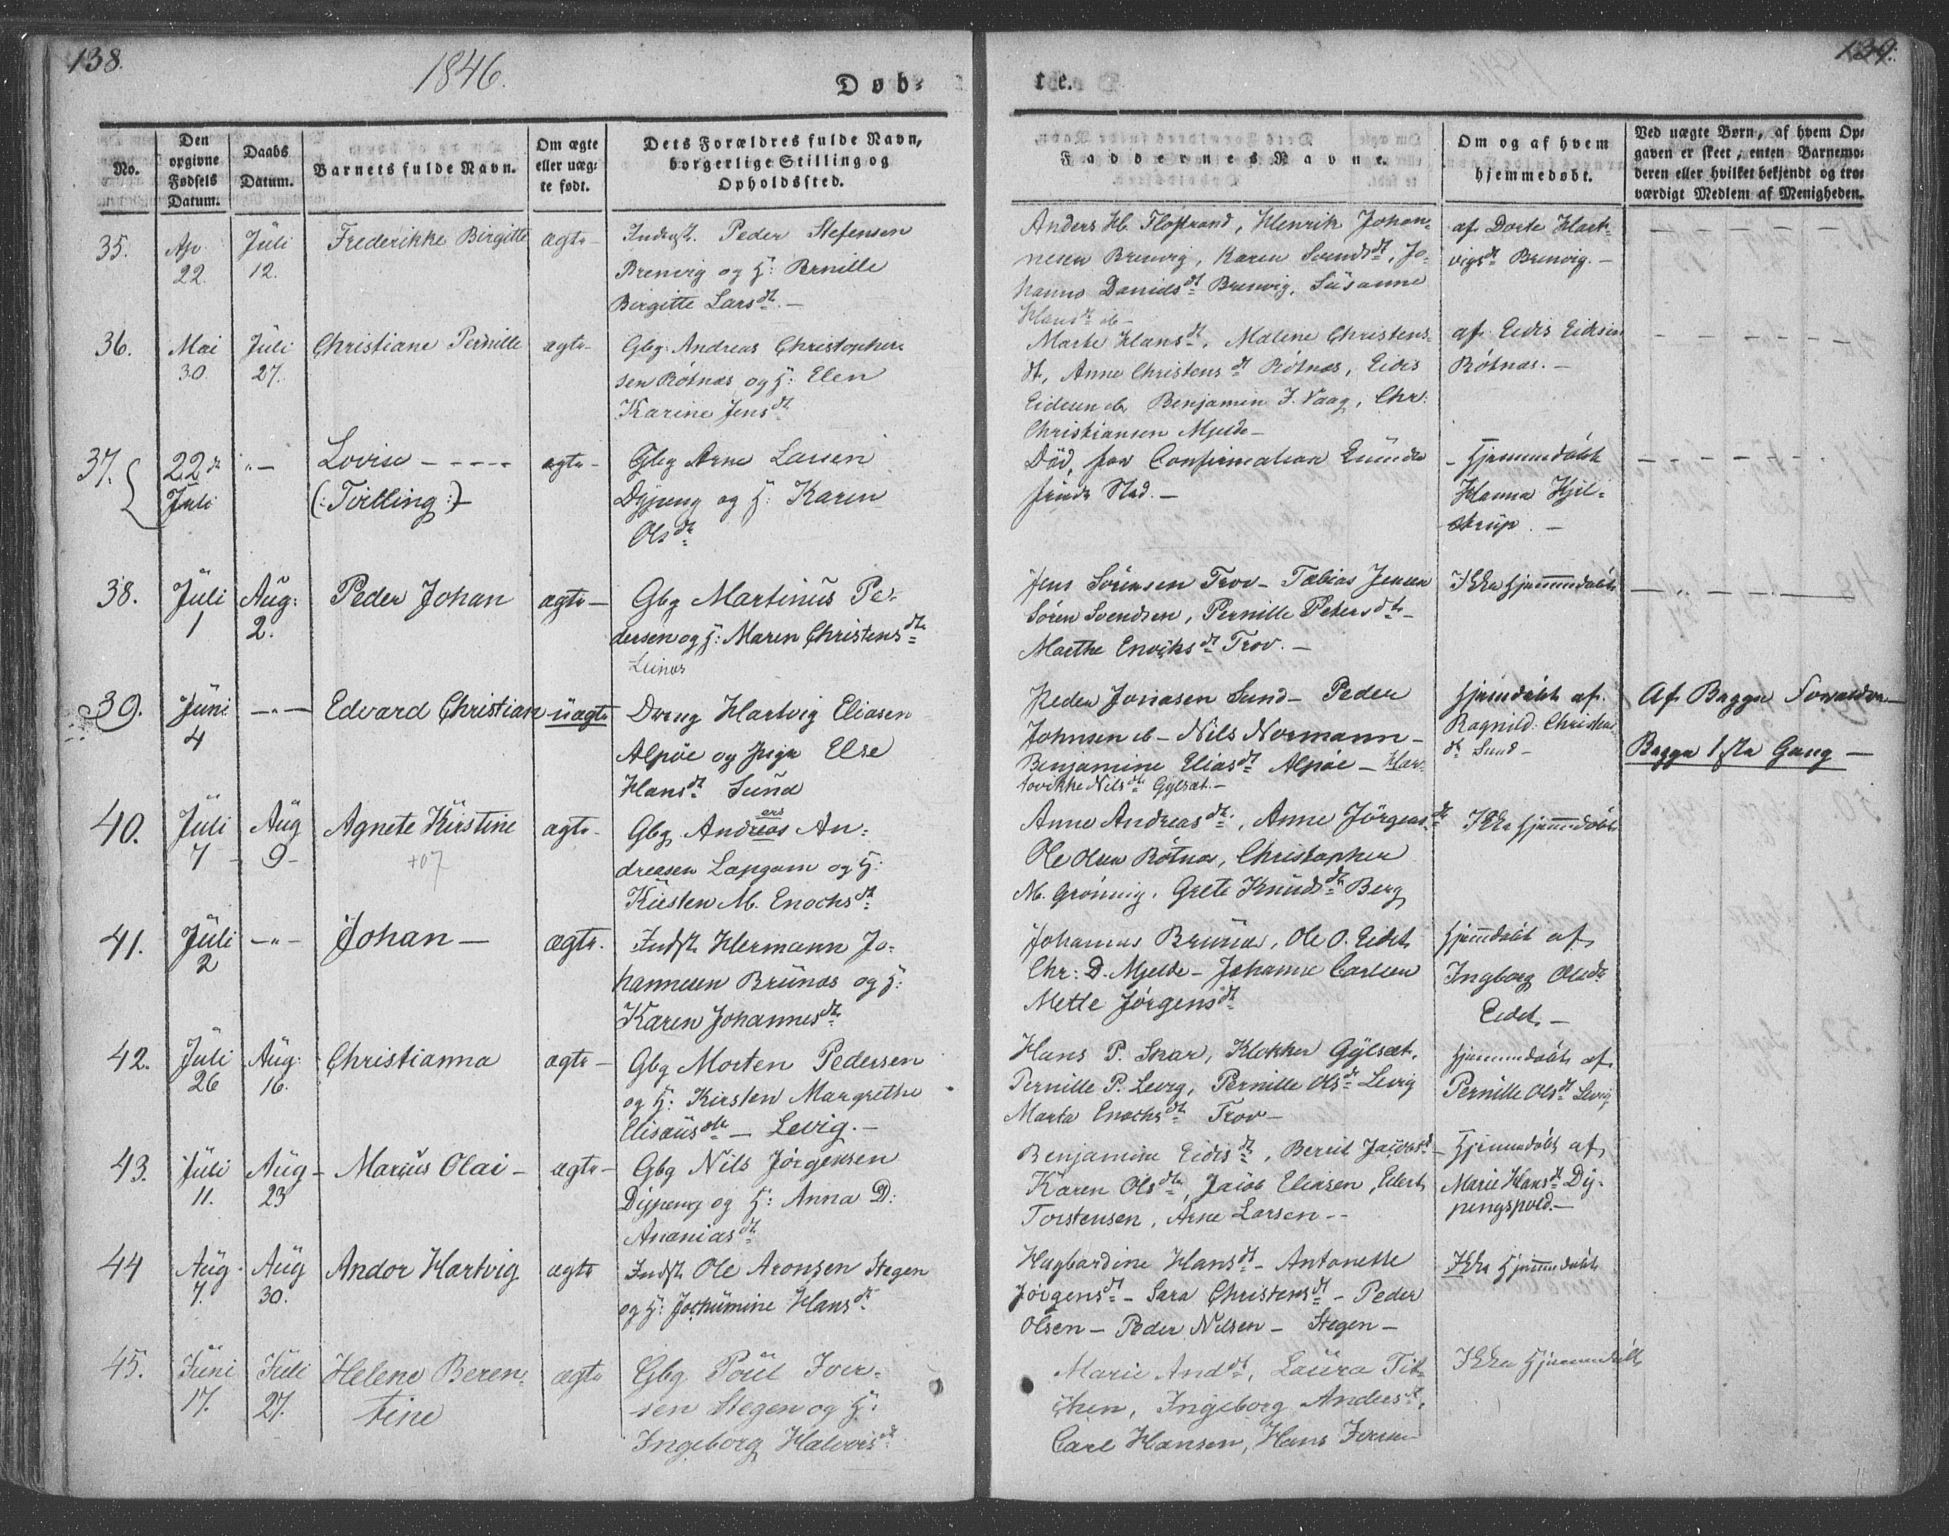 138.
1846.
Døb-
te.
139.
No.
Den opgivne Fødsels Datum.
Daabs Datum.
Barnets fulde Navn.
Om ægte eller uæg- te født.
Dets Forældres fulde Navn, borgerlige Stilling og Opholdssted.
Faddernes Navne.
Om og af hvem hjemmedøbt.
Ved uægte Børn, af hvem Op- gaven er skeet, enten Barnemo- deren eller hvilket bekjendt og tro- værdigt Medlem af Menigheden.
35.
Ap 22.
Juli 12.
Frederikke Birgitte
ægte
Peder Stefensen
Brenvig og H: Pernille
Birgitte Larsdt. –
Anders H. Flostrand, Henrik Johan-
nesen Brenvig, Karen Svendsdt, Jo-
hanna Danielsdt Brenvig, Susanne
Hansdt ib –
af Dorte Hart-
vigsdt Brenvig. –
36.
Mai 30.
Juli 27.
Christiane Pernille
ægte
Gbg. Andreas Christopher-
sen Rötnæs og H: Elen
Karine Jensdt
Marte Hansdt, Malene Christens-
dt, Anne Christensdt Rötnæs, Eidis
Eidesen ib Benjamin J. Vaag, Chr.
Christiansen Mjelde –
af Eidis Eidsen
Rötnæs. –
37.
22de Juli
"–
Lovise – – – –
(: Tvilling :)
ægte –
Gbg Arne Larsen
Dypeng og H: Karen
Olsdt
Död, før Confirmation
Sted. –
– Hjemmedöbt
Hanna Kjel-
strup. –
38.
Juli 1
Aug: 2.
Peder Johan
ægte –
Gbg Martinus Pe-
dersen og H: Maren Christensdt
Leinæs
Jens Sörensen Trov – Tobias Jensen
Sören Svendsen, Pernille Petersdt –
Marthe Enochsdt Trov. –
Ikke hjemmedöbt
39.
Juni 4
–"–
Edvard Christian
uægte
Dreng Hartvig Eliasen
Alpöe og Pige Else
Hansdt Sund
Peder Jonasen Sund – Peder
Johnsen ib – Nils Normann –
Benjamine Eliasdt Alpöe – Har-
tvikke Nilsdt Gylset. –
Hjemdöbt af
Ragnild Christens
dt Sund –
Af Begge Forældre –
Begge 1ste Gang –
40.
Juli 7 –
Aug 9 –
Agnete Kirstine
+07
ægte –
Gbg Andreas An-
ers
dreasen Langam og H:
Kirsten M. Enochsdt
Anne Andreasdt, Anne Jörgensdt
Ole Olsen Rötnæs, Christopher
M. Grönnig, Grete Knudsdt Berg
Ikke hjemmedöbt
41.
Juli 2
–"–
Johan –
ægte.
Indst. Hermann Jo-
hannesen Brunæs og H:
Karen Johannesdt
Johannes Brunæs, Ole O. Eidet
Chr: D. Mjelde – Johanne Carlsen
Mette Jörgensdt
Hjemdöbt af
Ingborg Olsdt
Eidet –
42.
Juli 26
Aug: 16.
Christianna
ægte –
Gbg Morten Pedersen
og H: Kirsten Margrethe
Elisæusdt – Levig. –
Hans P. Skar, Klokker Gylset,
Pernille P. Levig, Pernille Olsdt Levig
Marta Enochsdt Trov –
Hjemmedöbt af
Pernille Olsdt Levig
43.
Juli 11.
Aug – 23
Marius Olai –
ægte –
Gbg Nils Jörgensen
Dypeng og H: Anna D:
Ananiasdt
Benjamine Eidisdt, Beret Jacobsd
Karen Olsdt, Jacob Eliasen, Edert
Torstensen, Arne Larsen –
Hjemmedöbt af
Marie Hansdt Dy-
pengspold. –
44
Aug 7.
Aug 30.
Andor Hartvig
ægte
Indst. Ole Aronsen Stegen
og H: Jochumine Hansdt
Hagbardine Hansdt – Antonette
Jörgensdt – Sara Christensdt – Peder
Olsen – Peder Nilsen – Stegen –
Ikke hjemmedöbt
45.
Juni 17.
Juli 27.
Helene Beren-
tine
ægte
Gbg Poul Iver-
sen Stegen og H:
Ingeborg Halvorsdt
Marie Anddt, Laura Tit-
chen, Ingeborg Andersdt,
Carl Hansen, Hans Iversen
Ikke hjemmedöbt